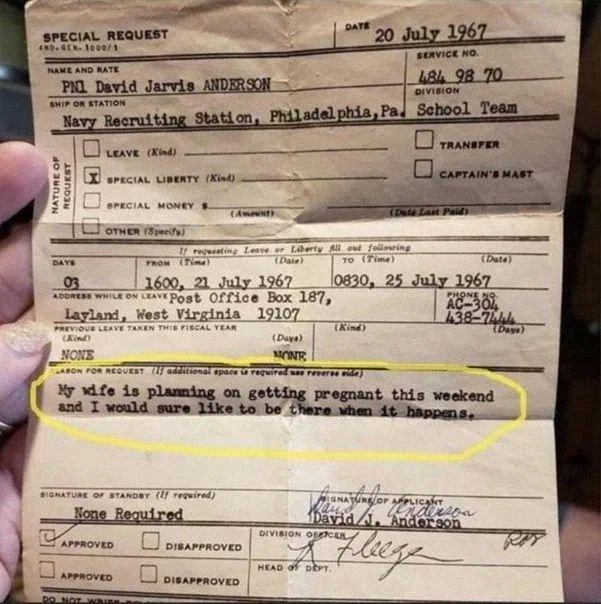 SPECIAL REQUEST
DATE 20 July 1967
4ND-GEN-1000/1
SERVICE NO.
NAME AND RATE
484 98 70
PN1 David Jarvis ANDERSON
DIVISION
SHIP OR STATION
Navy Recruiting Station, Philadelphia, Pa. School Team
NATURE OF REQUEST
LEAVE (Kind) TRANSFER
X SPECIAL LIBERTY (Kind) CAPTAIN'S MAST
SPECIAL MONEY $
(Amount) (Date Last Paid)
OTHER (Specify)
If requesting Leave or Liberty fill out following
DAYS FROM (Time) (Date) TO (Time) (Date)
03 1600, 21 July 1967 0830, 25 July 1967
ADDRESS WHILE ON LEAVE Post Office Box 187, PHONE NO.
AC-304
Layland, West Virginia 19107 438-7444
PREVIOUS LEAVE TAKEN THIS FISCAL YEAR
(Kind) (Days) (Kind) (Days)
NONE NONE
REASON FOR REQUEST (If additional space is required use reverse side)
My wife is planning on getting pregnant this weekend
and I would sure like to be there when it happens.
SIGNATURE OF STANDBY (If required) SIGNATURE OF APPLICANT
David J. Anderson
None Required David J. Anderson
APPROVED DISAPPROVED DIVISION OFFICER
HEAD OF DEPT.
APPROVED DISAPPROVED
DO NOT WRITE